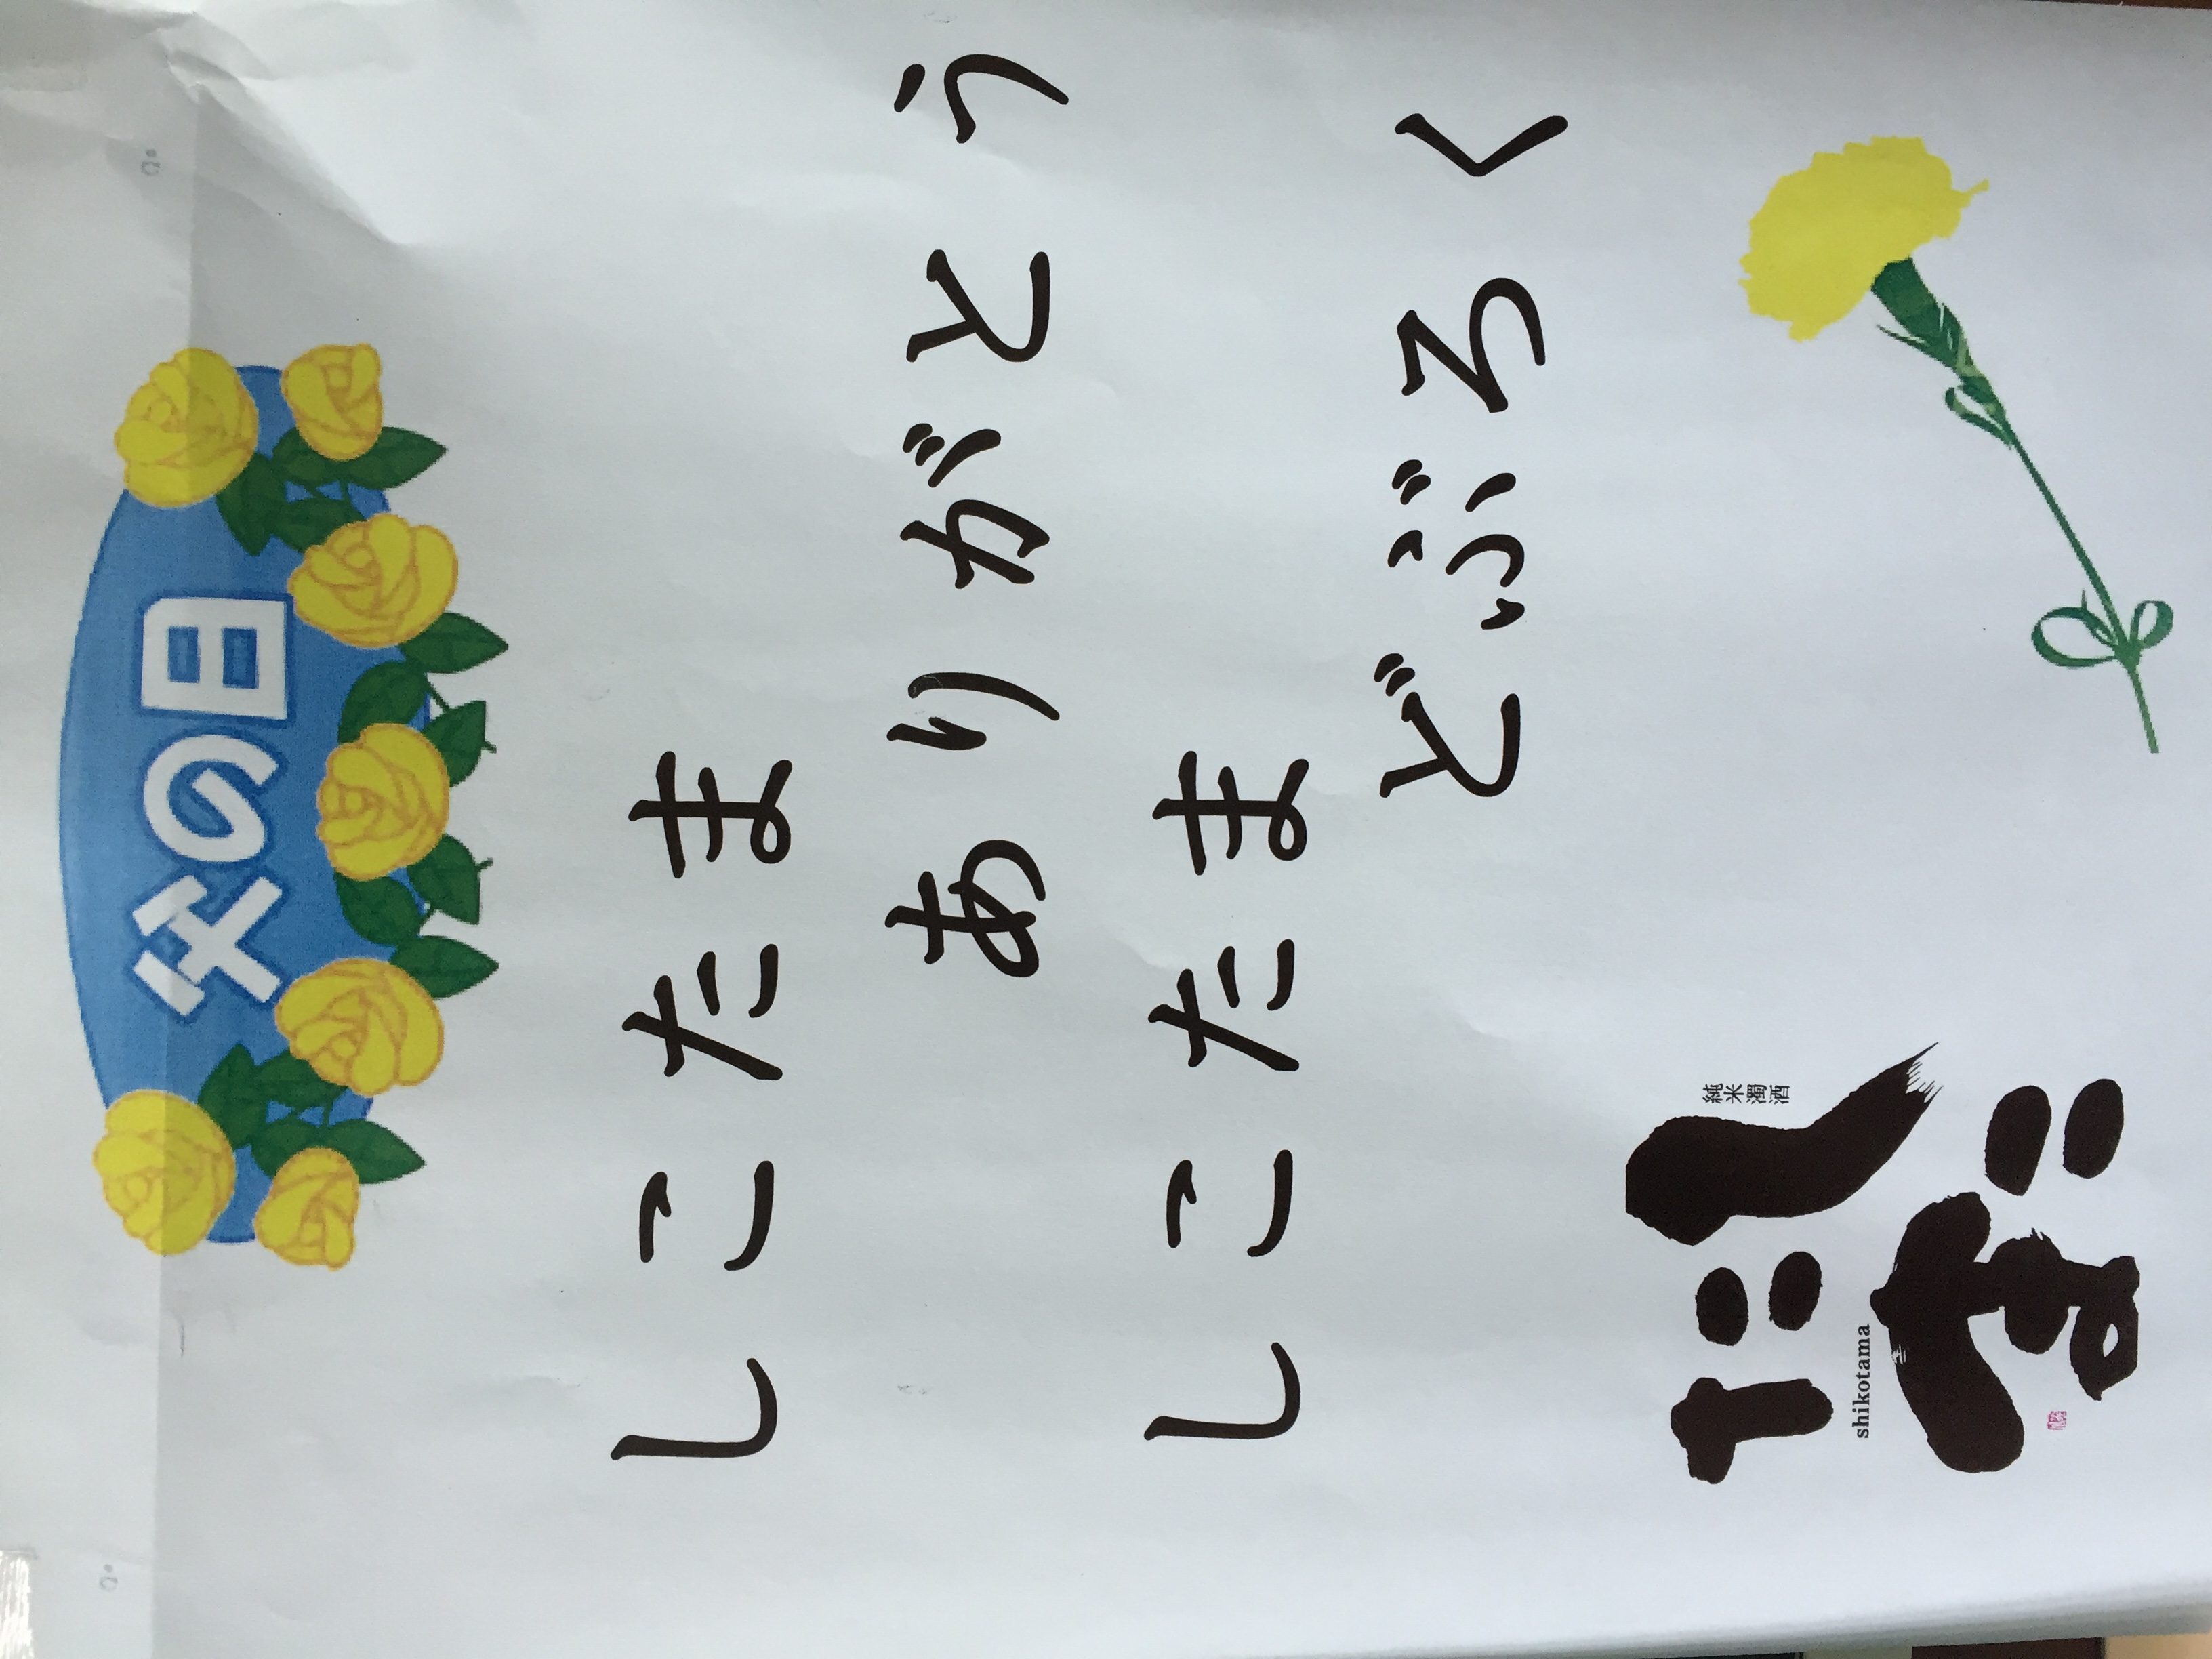 父の日
しこたま
ありがとう
しこたま
どぶろく
純米濁酒
しこたま
shikotama